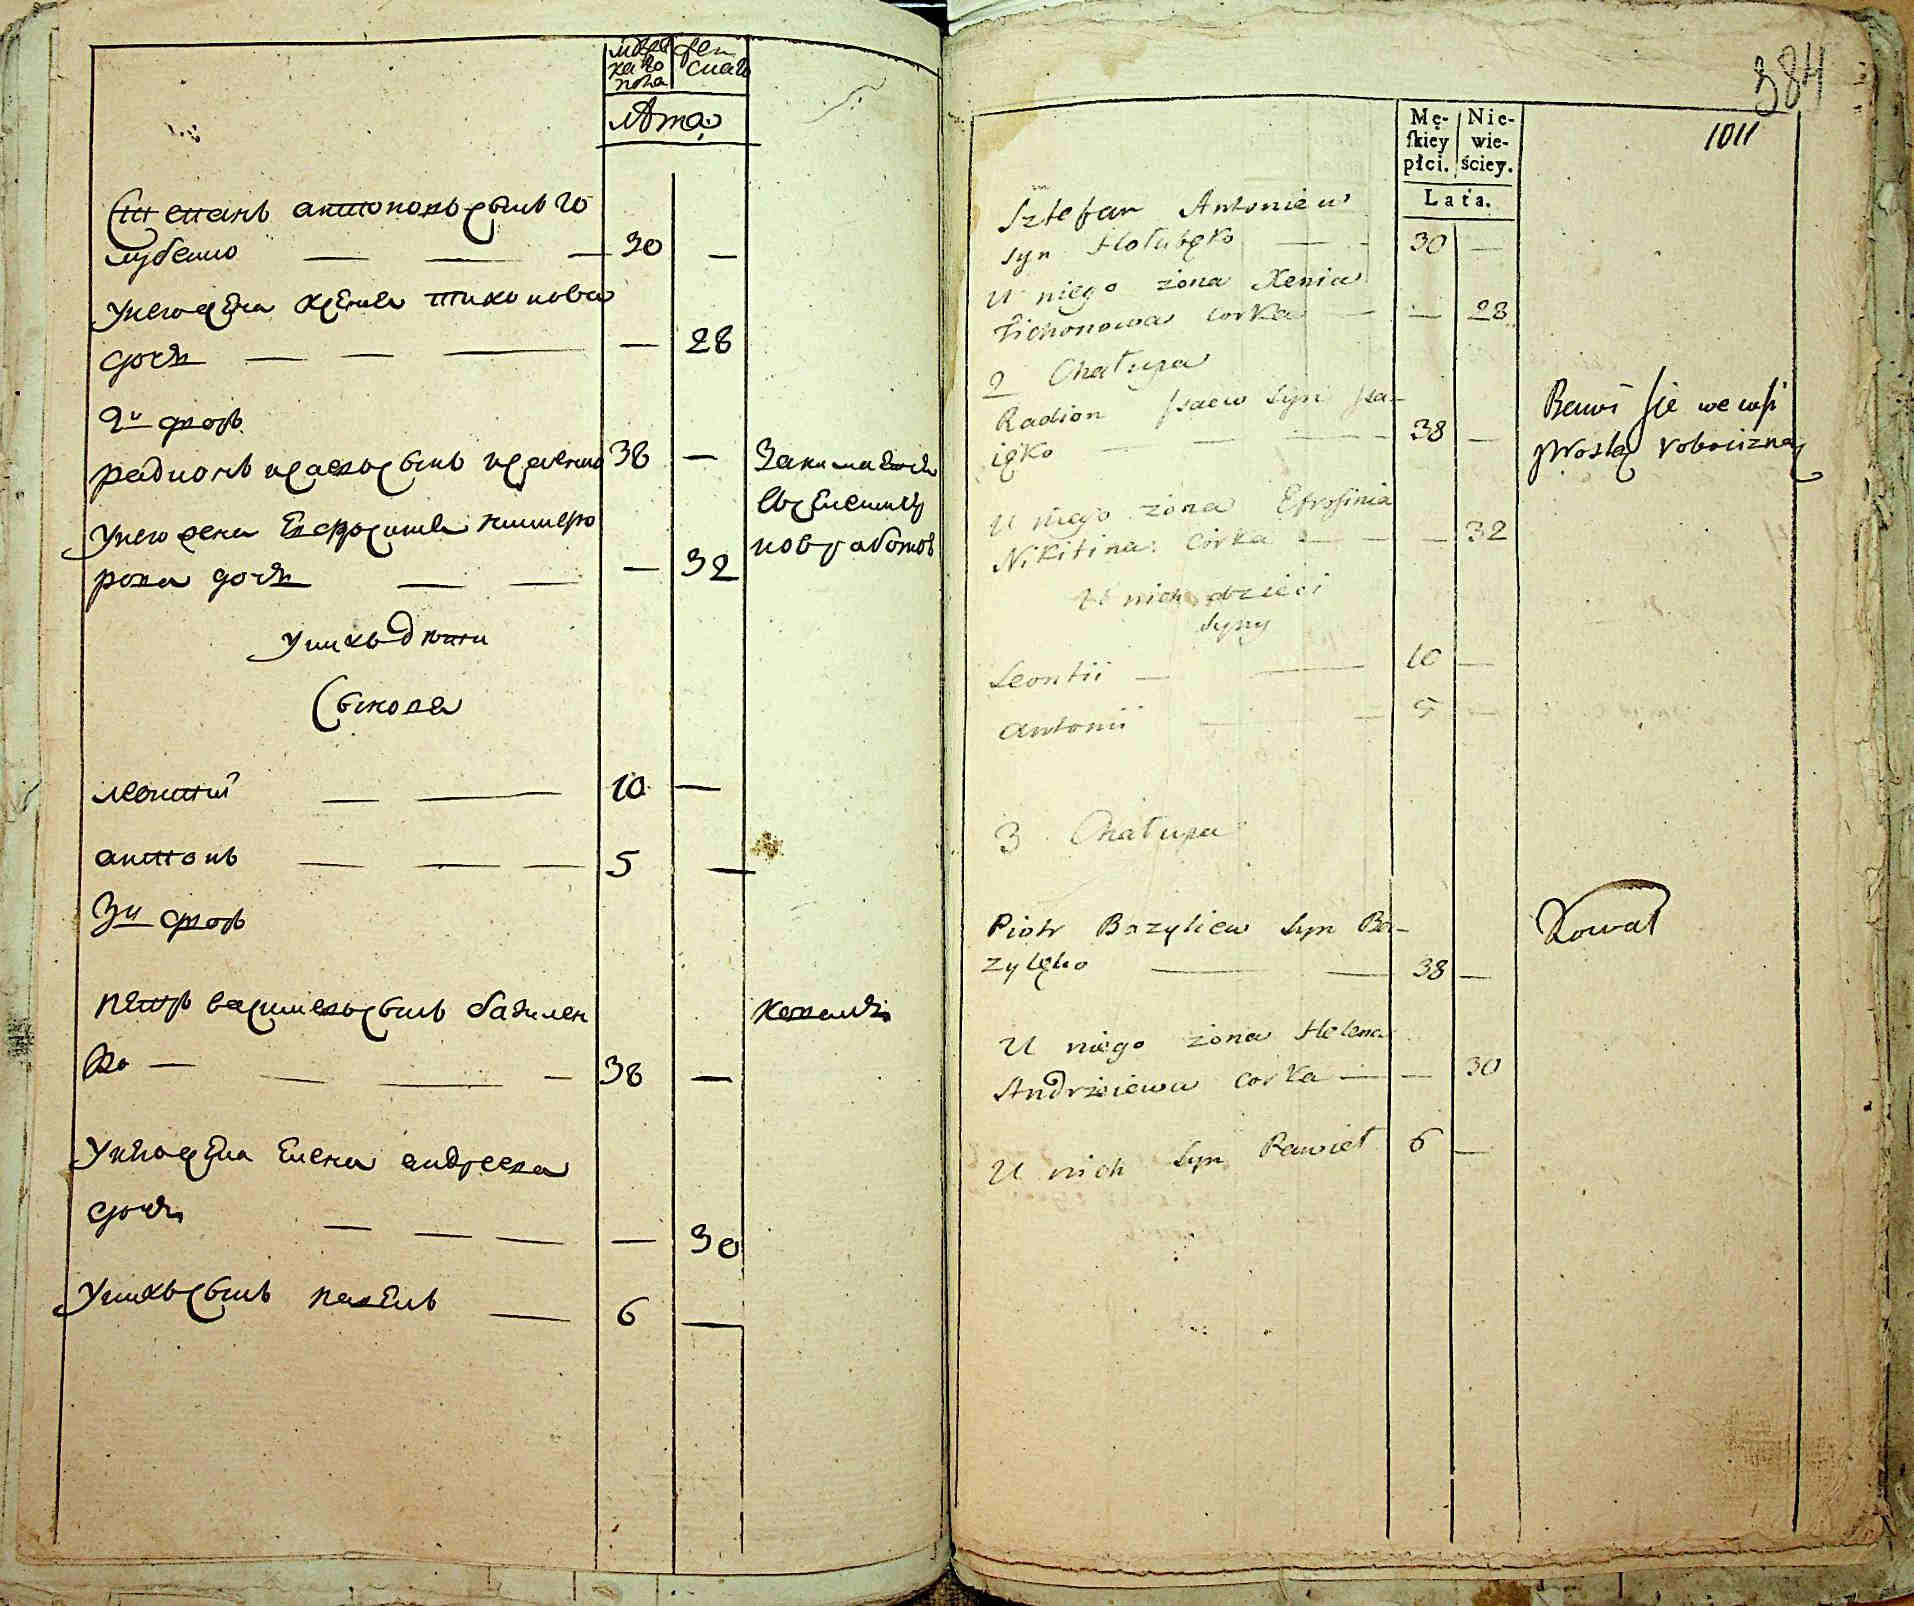 мужеска го пола
жен скаго
Лета
Степанъ антоновъ сынъ го
лубенко — — — 30 —
Унего жена ксения тихонова
дочь — — — — 28
2й дворъ
радионъ исаевъ сынъ исаенко 38 —
Унего жена Евфросиния никифо
рова дочь — — — 32
Занимается
въ
работою
Унихъ дети
Сыновя
леонтий — — 10 —
антонъ — — — 5 —
3й дворъ
петръ василевъ сынъ базилен
ко — — — — 38 —
коваль
Унего жена Елена андреева
дочь — — — — 30
Унихъ сынъ павелъ — 6 —
384
1011
Mę-
skiey
płci.
Nie-
wie-
ściey.
Lata.
Sztefan Antoniew
syn Hołubęko — — 30 —
U niego zona Xenia
Tichonowa corka — — 28
2 Chałupa
Radion Jsaew Syn Jsa-
ięko — — — 38 —
Bawi się we wsi
prostą robocizną
U niego zona Efrosinia
Nikitina corka — — — 32
U nich dzieci
Syny
Leontii — — 10 —
Antonii — — 5 —
3 Chałupa
Piotr Bazyliew Syn Ba-
zylęko — — 38 —
Kowal
U niego zona Helena
Andrzeiewa corka — — 30
U nich Syn Paweł 6 —